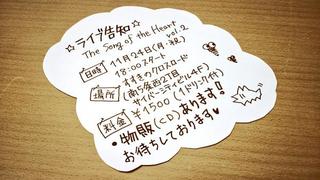 ☆ライブ告知☆
The Song of the Heart
vol.2
日時 11月24日(月・祝)
18:00スタート
場所 すすきのクロスロード
(南5条西2丁目
サイバーシティビル4F)
料金 ¥1500(1ドリンク付)
・物販(CD)あります!
お待ちしております♥